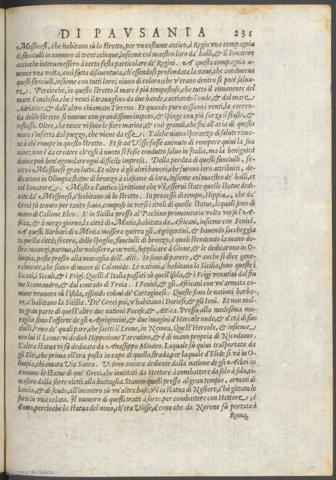 DI PAVSANIA 231
Messinesi, che habitano sù lo stretto, per vn costume antico, à Regio vna compagnia
di fanciulli in numero di trentacinque, insieme col maestro loro de' balli, & il Sonatore
acciò che interuenissero à certa festa particolare de' Regini. A questa compagnia a-
uenne vna volta, così fatta disauentura, ch'essendosi profondata la naue, che conduceua
questi fanciulli, insieme con tutti loro; niuno di coloro che v'erano dentro si potè salua-
re. Percioche, in questo stretto il mare è più tempestuoso, che tutto il rimanente del
mare. Conciosia, che i venti il trauaglino da due bande, eccitando l'onde, & dal mare
Adriatico, & dall'altro chiamato Tirreno. Et quando pure cessano i venti, la corren-
tia dello stretto si muoue con grandissimo impeto, & spinge con più forza il flusso, &
reflusso. Oltre, che tante vi sono le fiere marine, & così grandi, che fin all'aria di questo
mare s'infetta dal puzzo, che viene da esse. Talche niuna speranza di salute rima-
ne à chi rompe in questo stretto. Et se ad Vlisse fusse auenuto di rompere quiui la sua
naue; non è da credere ch'egli à nuoto si fosse condotto saluo in Italia, ma la benignità
diuina può ben'ageuolare ogni difficile impresa. Della perdita di questi fanciulli, fe-
cero i Messinesi gran lutto. Et oltre à gli altri honori, che furono loro attribuiti, de-
dicarono in Olimpia statue di bronzo à ciascuno di loro, insieme col maestro de' balli, et
col Sonatore. Mostra l'antica iscrittione che v'è, essersi state quelle statue dedi-
cate da' Messinesi, c'habitano sù lo stretto. In processo di tempo, Hippia, che da'
Greci fù tenuto per tanto sauio, compose in versi i motti di quelle statue, lequali sono di
mano di Callone Eleo. E' in Sicilia presso al Pachino promontorio volto verso l'A-
frica, & à mezo giorno, la città di Motia, habitata da Africani, insieme con Fenici.
A questi Barbari di Motia mossero guerra gli Agrigentini, & hauendo saccheggia-
to quella città; fecero, delle spoglie, fanciulli di bronzo, i quali stendendo la mano de-
stra inanzi, paruesi, che volessero, con voti, supplicare à Gioue, & le dedicarono in O-
limpia, poste presso alla muraglia dell'Alti. Io stimo, & anche si dice gene-
ralmente, che siano di mano di Calamide. Le nationi, c'habitano la Sicilia sono queste; i
Sicani, i Siculi, & i Frigi. Quelli d'Italia passati in quell'isola, & i Frigi venutiui dal fiu-
me Scamandro, & dal contado di Troia. I Fenici, & gli Africani con vn'armata co-
mune vennero in l'Isola, essendo coloni de' Cartaginesi. Queste sono le nationi barba-
re, c'habitano la Sicilia. De' Greci poi, v'habitano i Doriesi, & gli Ioni. Et non mol-
to gran parte di quell'altre due nationi Focese, & Attica. Presso alla medesima mu-
raglia sono l'offerte de gli Agrigentini, & due imagini d'Hercole ignude, & d'età di fan-
ciulli, & vno de' quali pare, che saetti il Leone, in Nemea. Quest'Hercole, & insieme
con lui il Leone vi dedicò Hippotione Tarentino, & è di mano propria di Nicodamo.
L'altra statua vi fù dedicata da Anassippo Mindeo. Laquale fù quiui trasportata da
gli Elei, che prima ell'era posta in capo di quella strada, per laquale d'Elide si và in O-
limpia, chiamata Via Sacra. Vi sono ancora dedicate dalla natione de gli Achei in
comune le statue di que' Greci, che inuitati da Hettore à combattere da solo à solo, fu-
rono dalla sorte eletti alla battaglia. Stanno queste presso al gran tempio, armati di
lancia, & di scudo, all'incontro sù vn'altra base, v'è la statua di Nestore, c'hà gittate le
sorti in vna celata. Il numero di questi tratti à sorte, per combattere con Hettore è d'
otto, percioche la statua del nono, ch'era Vlisse, è cosa che da Nerone fù portata à
Roma,